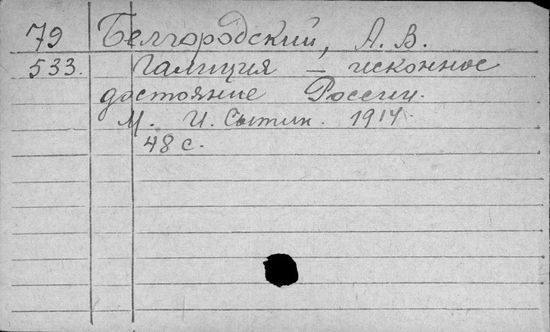 79 Белгородский, А. В.
533. Галиция – исконное
достояние России.
М. И. Сытин. 1914.
48 с.